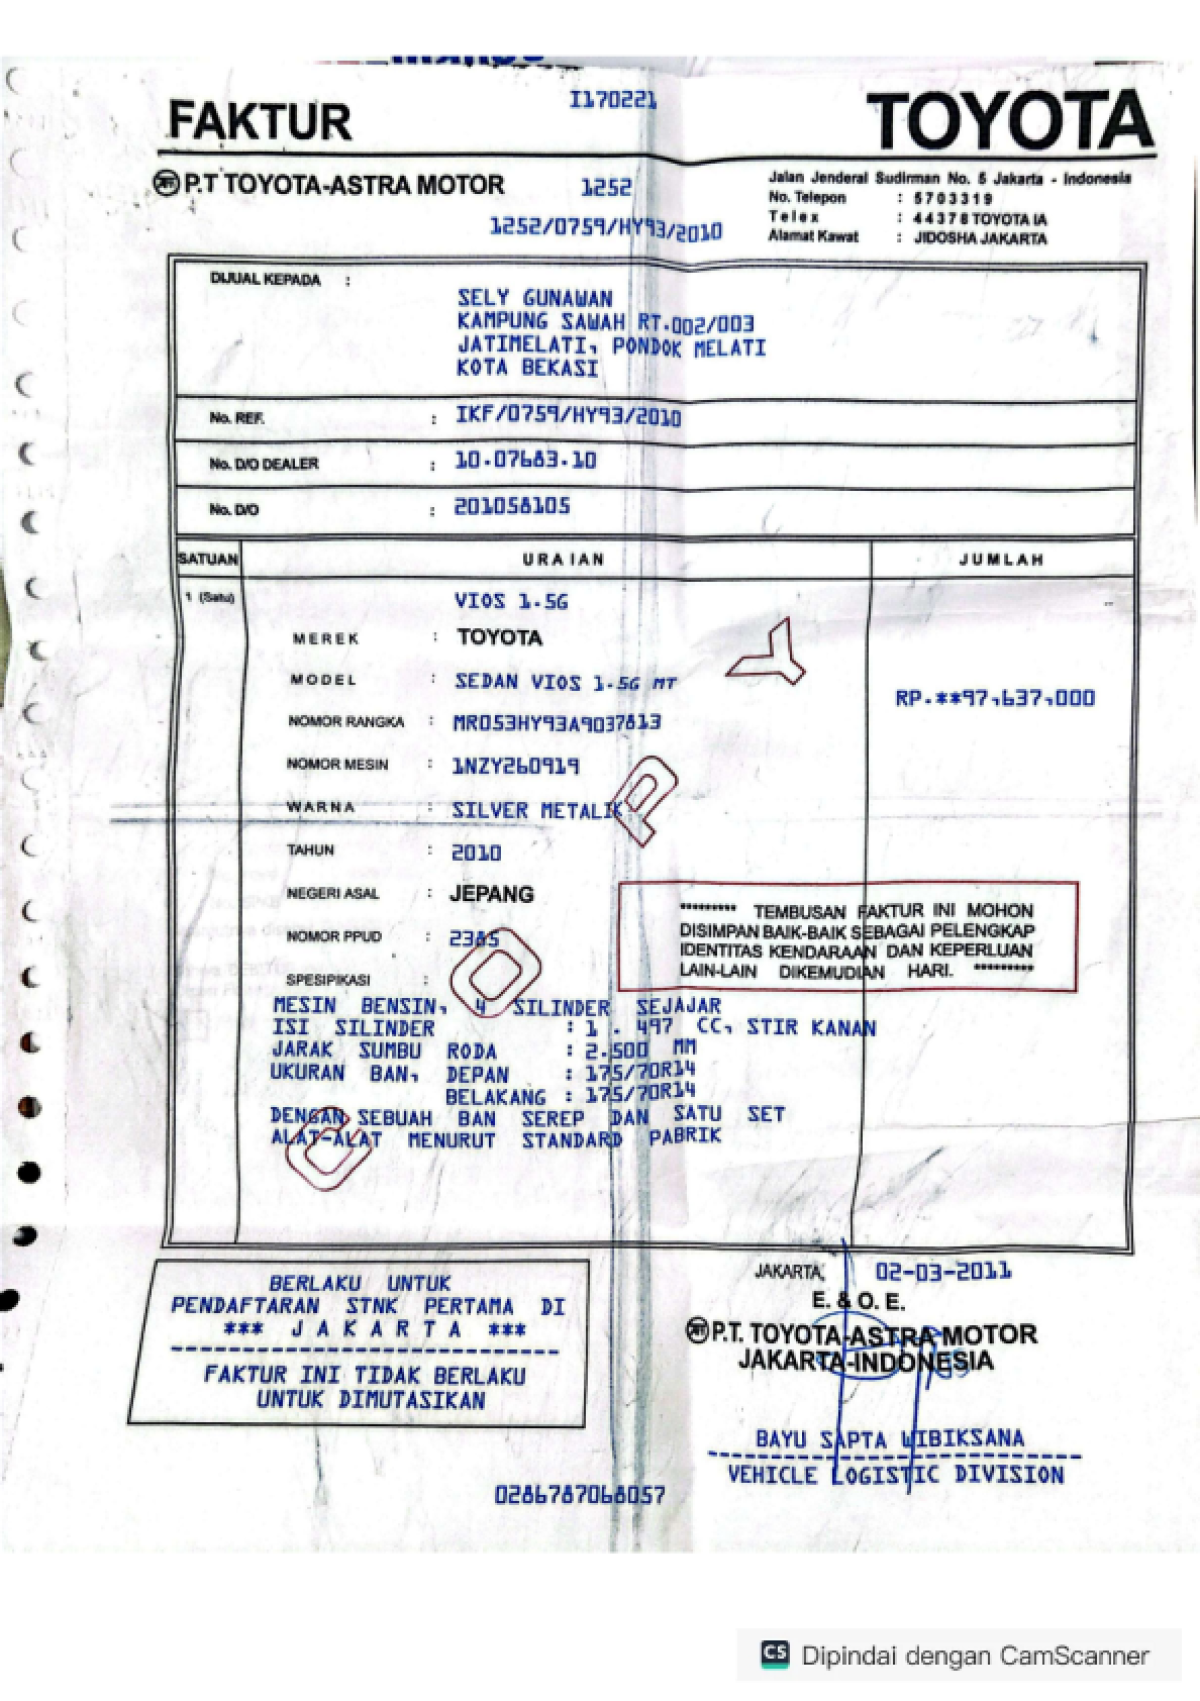 I170221
FAKTUR
TOYOTA
P.T TOYOTA-ASTRA MOTOR
1252
1252/0759/HY93/2010
Jalan Jenderal Sudirman No. 5 Jakarta - Indonesia
No. Telepon : 5703319
Telex : 44378 TOYOTA IA
Alamat Kawat : JIDOSHA JAKARTA
DIJUAL KEPADA :
SELY GUNAWAN
KAMPUNG SAWAH RT.002/003
JATIMELATI, PONDOK MELATI
KOTA BEKASI
No. REF. : IKF/0759/HY93/2010
No. D/O DEALER : 10.07683.10
No. D/O : 201058105
SATUAN URAIAN JUMLAH
1 (Satu) VIOS 1.5G
MEREK : TOYOTA
MODEL : SEDAN VIOS 1.5G MT
RP.**97,637,000
NOMOR RANGKA : MR053HY93A9037813
NOMOR MESIN : 1NZY260919
WARNA : SILVER METALIK
TAHUN : 2010
NEGERI ASAL : JEPANG
NOMOR PPUD : 2385
SPESIPIKASI :
********* TEMBUSAN FAKTUR INI MOHON
DISIMPAN BAIK-BAIK SEBAGAI PELENGKAP
IDENTITAS KENDARAAN DAN KEPERLUAN
LAIN-LAIN DIKEMUDIAN HARI. *********
MESIN BENSIN, 4 SILINDER SEJAJAR
ISI SILINDER : 1 . 497 CC, STIR KANAN
JARAK SUMBU RODA : 2.500 MM
UKURAN BAN, DEPAN : 175/70R14
BELAKANG : 175/70R14
DENGAN SEBUAH BAN SEREP DAN SATU SET
ALAT-ALAT MENURUT STANDARD PABRIK
COPY
BERLAKU UNTUK
PENDAFTARAN STNK PERTAMA DI
*** J A K A R T A ***
FAKTUR INI TIDAK BERLAKU
UNTUK DIMUTASIKAN
JAKARTA, 02-03-2011
E. & O. E.
P.T. TOYOTA-ASTRA MOTOR
JAKARTA-INDONESIA
BAYU SAPTA WIBIKSANA
VEHICLE LOGISTIC DIVISION
0286787068057
CS Dipindai dengan CamScanner